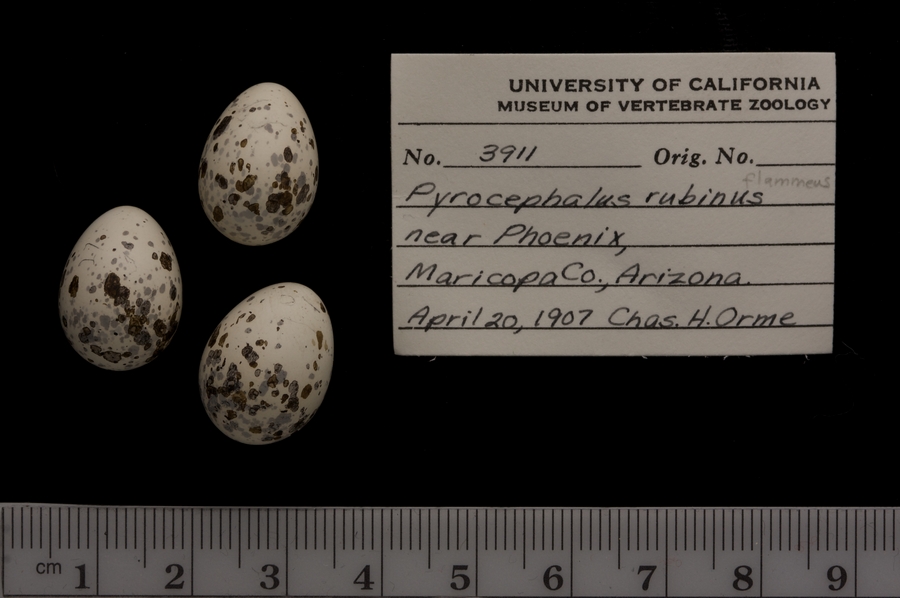 UNIVERSITY OF CALIFORNIA
MUSEUM OF VERTEBRATE ZOOLOGY
No. 3911 Orig. No.
flammeus
Pyrocephalus rubinus
near Phoenix,
Maricopa Co., Arizona.
April 20, 1907 Chas. H. Orme
cm 1 2 3 4 5 6 7 8 9